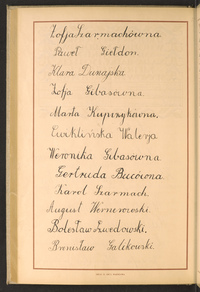 Zofja Szarmachówna.
Paweł Siełdon.
Klara Dunajska.
Zofja Gibasówna.
Marta Kupczykówna.
Ćwiklińska Walerja
Weronika Gibasówna.
Gertruda Bucówna.
Karol Szarmach.
August Wernerowski.
Bolesław Lwodowski.
Bronisław Galikowski.